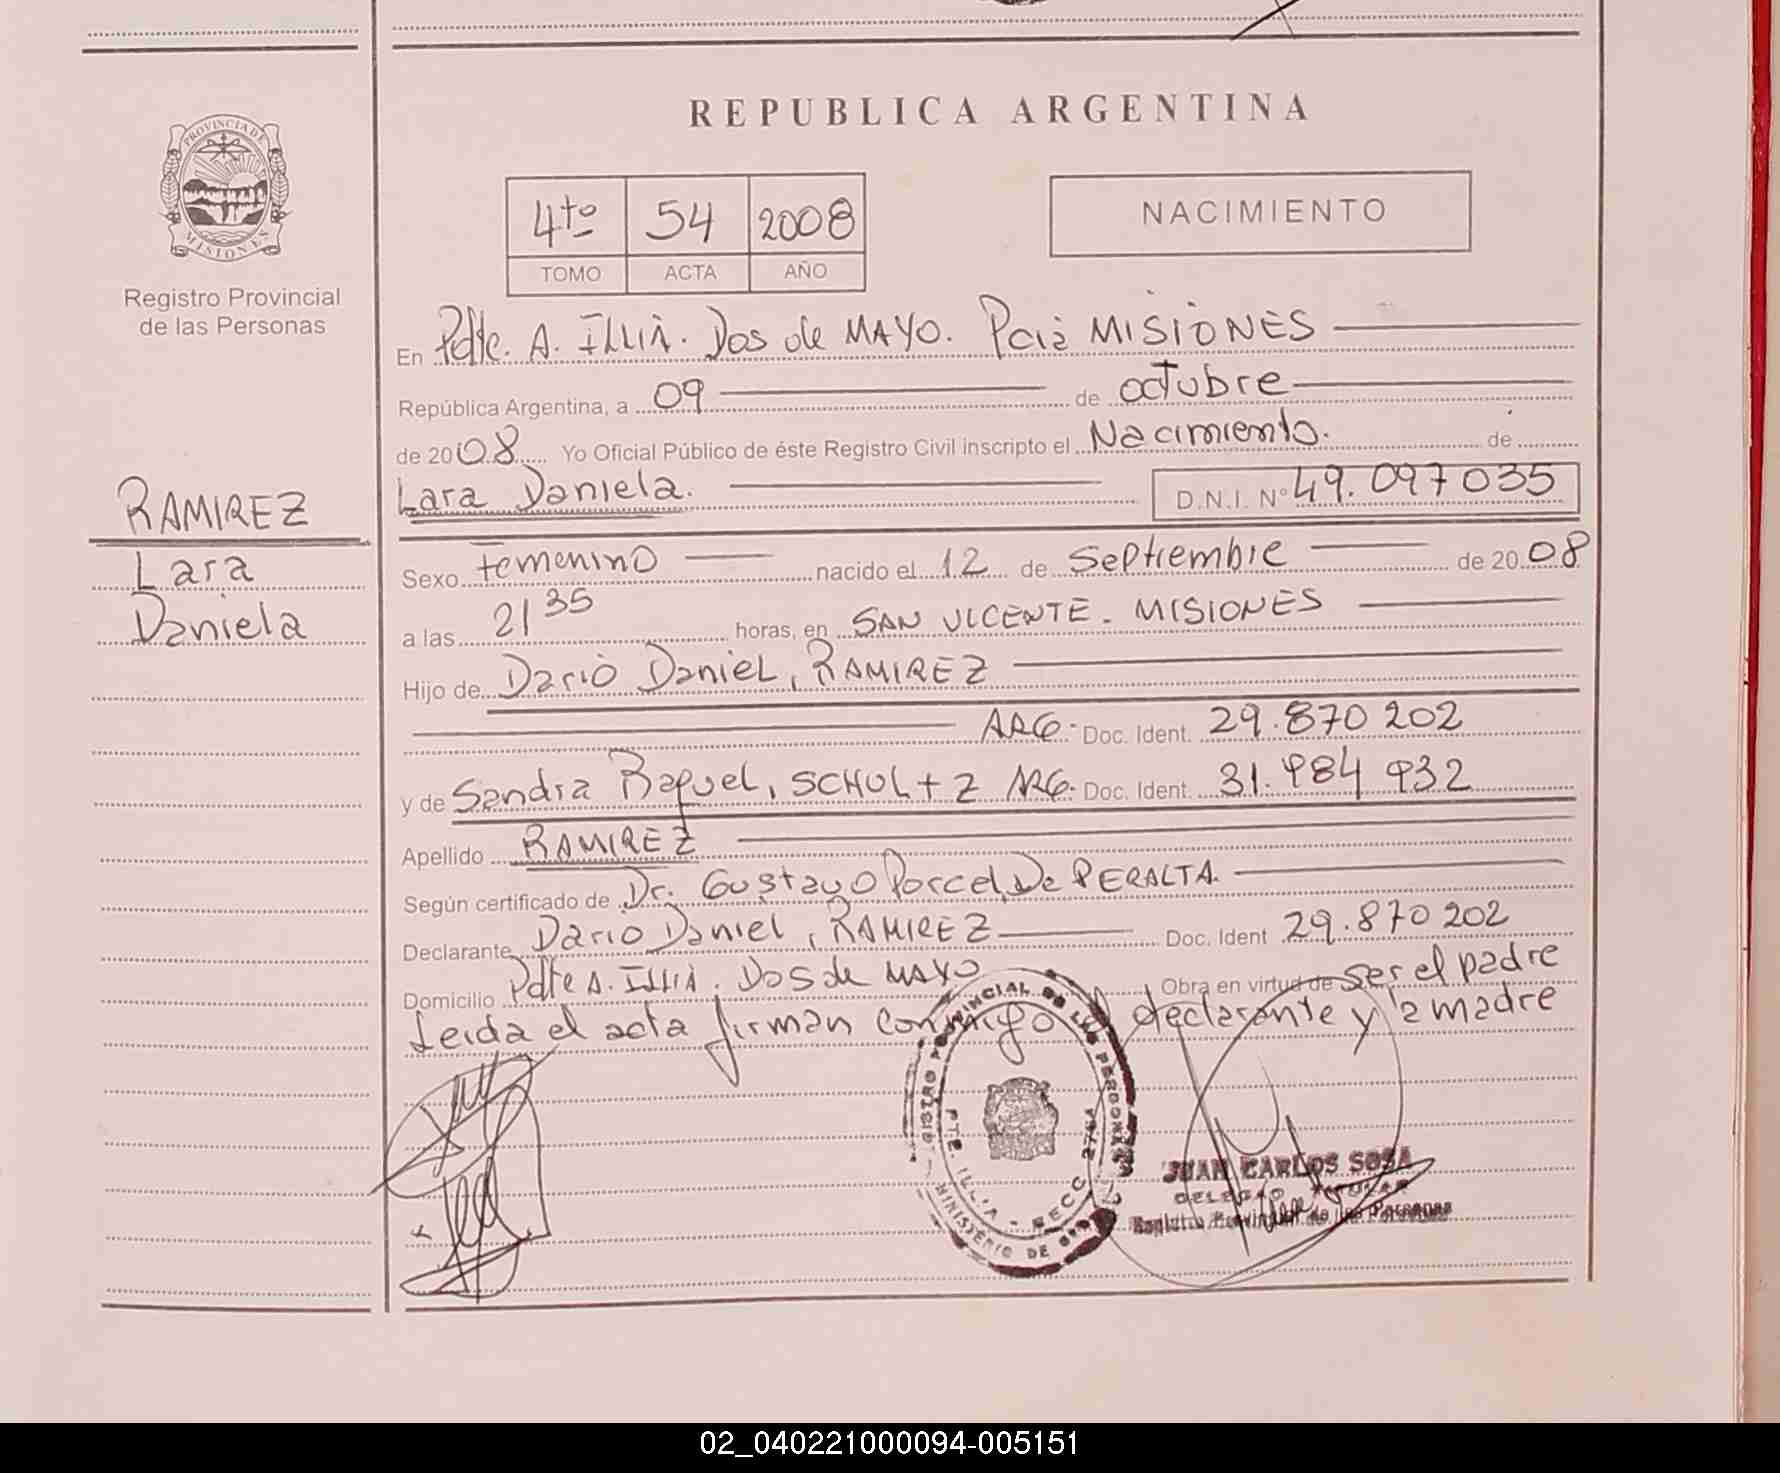 REPUBLICA ARGENTINA
PROVINCIA DE MISIONES
Registro Provincial
de las Personas
4to 54 2008
TOMO ACTA AÑO
NACIMIENTO
En Pdte. A. ILLIA. Dos de MAYO. Pcia MISIONES
República Argentina, a 09 de octubre
de 2008 Yo Oficial Público de éste Registro Civil inscripto el Nacimiento. de
Lara Daniela. D.N.I. Nº 49.097035
RAMIREZ
Lara
Daniela
Sexo Femenino nacido el 12 de Septiembre de 2008
a las 21 35 horas, en SAN VICENTE - MISIONES
Hijo de Dario Daniel, RAMIREZ
ARG. Doc. Ident. 29.870 202
y de Sandra Raquel, SCHULTZ ARG. Doc. Ident. 31.984 932
Apellido RAMIREZ
Según certificado de Dr. Gustavo Porcel De PERALTA.
Declarante Dario Daniel, RAMIREZ Doc. Ident 29.870 202
Domicilio Pdte A. ILLIA. Dos de MAYO Obra en virtud de ser el padre
Leida el acta firman conmigo el declarante y la madre
REGISTRO PROVINCIAL DE LAS PERSONAS
PTE. ILLIA - SECC. 2764
MINISTERIO DE
JUAN CARLOS SOSA
DELEGADO TITULAR
Registro Provincial de las Personas
02_040221000094-005151